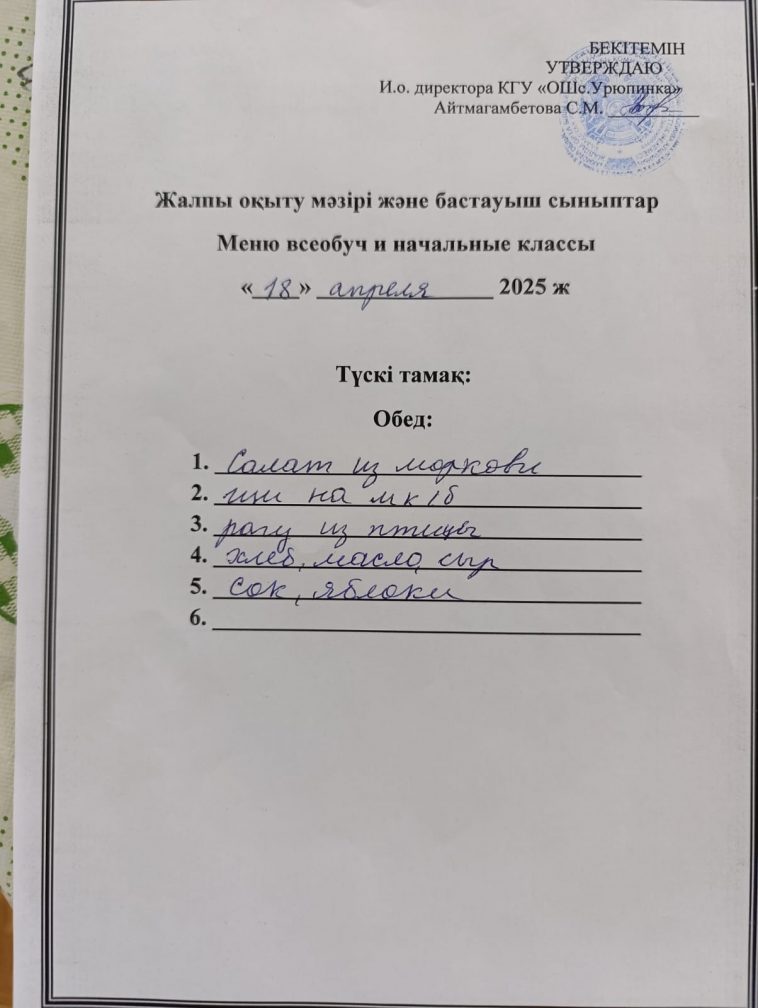 БЕКІТЕМІН
УТВЕРЖДАЮ
И.о. директора КГУ «ОШс.Урюпинка»
Айтмагамбетова С.М.
Жалпы оқыту мәзірі және бастауыш сыныптар
Меню всеобуч и начальные классы
«18» апреля 2025 ж
Түскі тамақ:
Обед:
1. Салат из моркови
2. щи на мк/б
3. рагу из птицы
4. хлеб, масло, сыр
5. сок, яблоки
6.